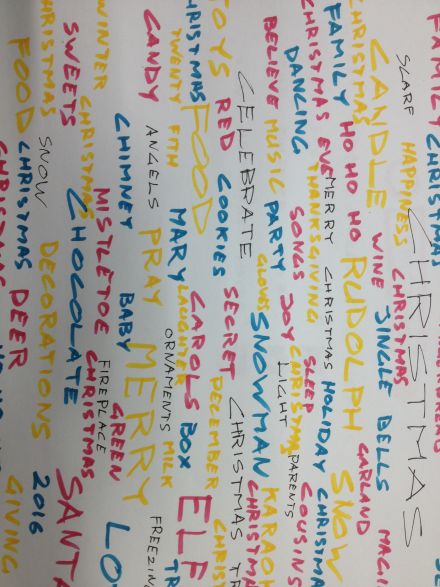 FAMILY CHRISTMAS
SCARF HAPPINESS CHRISTMAS
CHRISTMAS
CANDLE WINE JINGLE BELLS
CHRISTMAS HO HO HO RUDOLPH GARLAND
FAMILY MERRY CHRISTMAS HOLIDAY SNOW
CHRISTMAS EVE THANKSGIVING SLEEP COUSINS
DANCING SONGS JOY CHRISTMAS LIGHT PARENTS
BELIEVE MUSIC PARTY GLOVES SNOWMAN
CELEBRATE CHRISTMAS
TOYS RED COOKIES SECRET CHRISTMAS
CHRISTMAS FOOD CAROLS DECEMBER
TWENTY FITH MARY LAUGHTER BOX ELF
CANDY ANGELS PRAY ORNAMENTS MILK
CHIMNEY BABY MERRY
WINTER CHRISTMAS MISTLETOE GREEN LO
SWEETS CHOCOLATE FIREPLACE CHRISTMAS SANTA
CHRISTMAS SNOW DECORATIONS 2016
FOOD CHRISTMAS DEER GIVING
CHRISTMAS